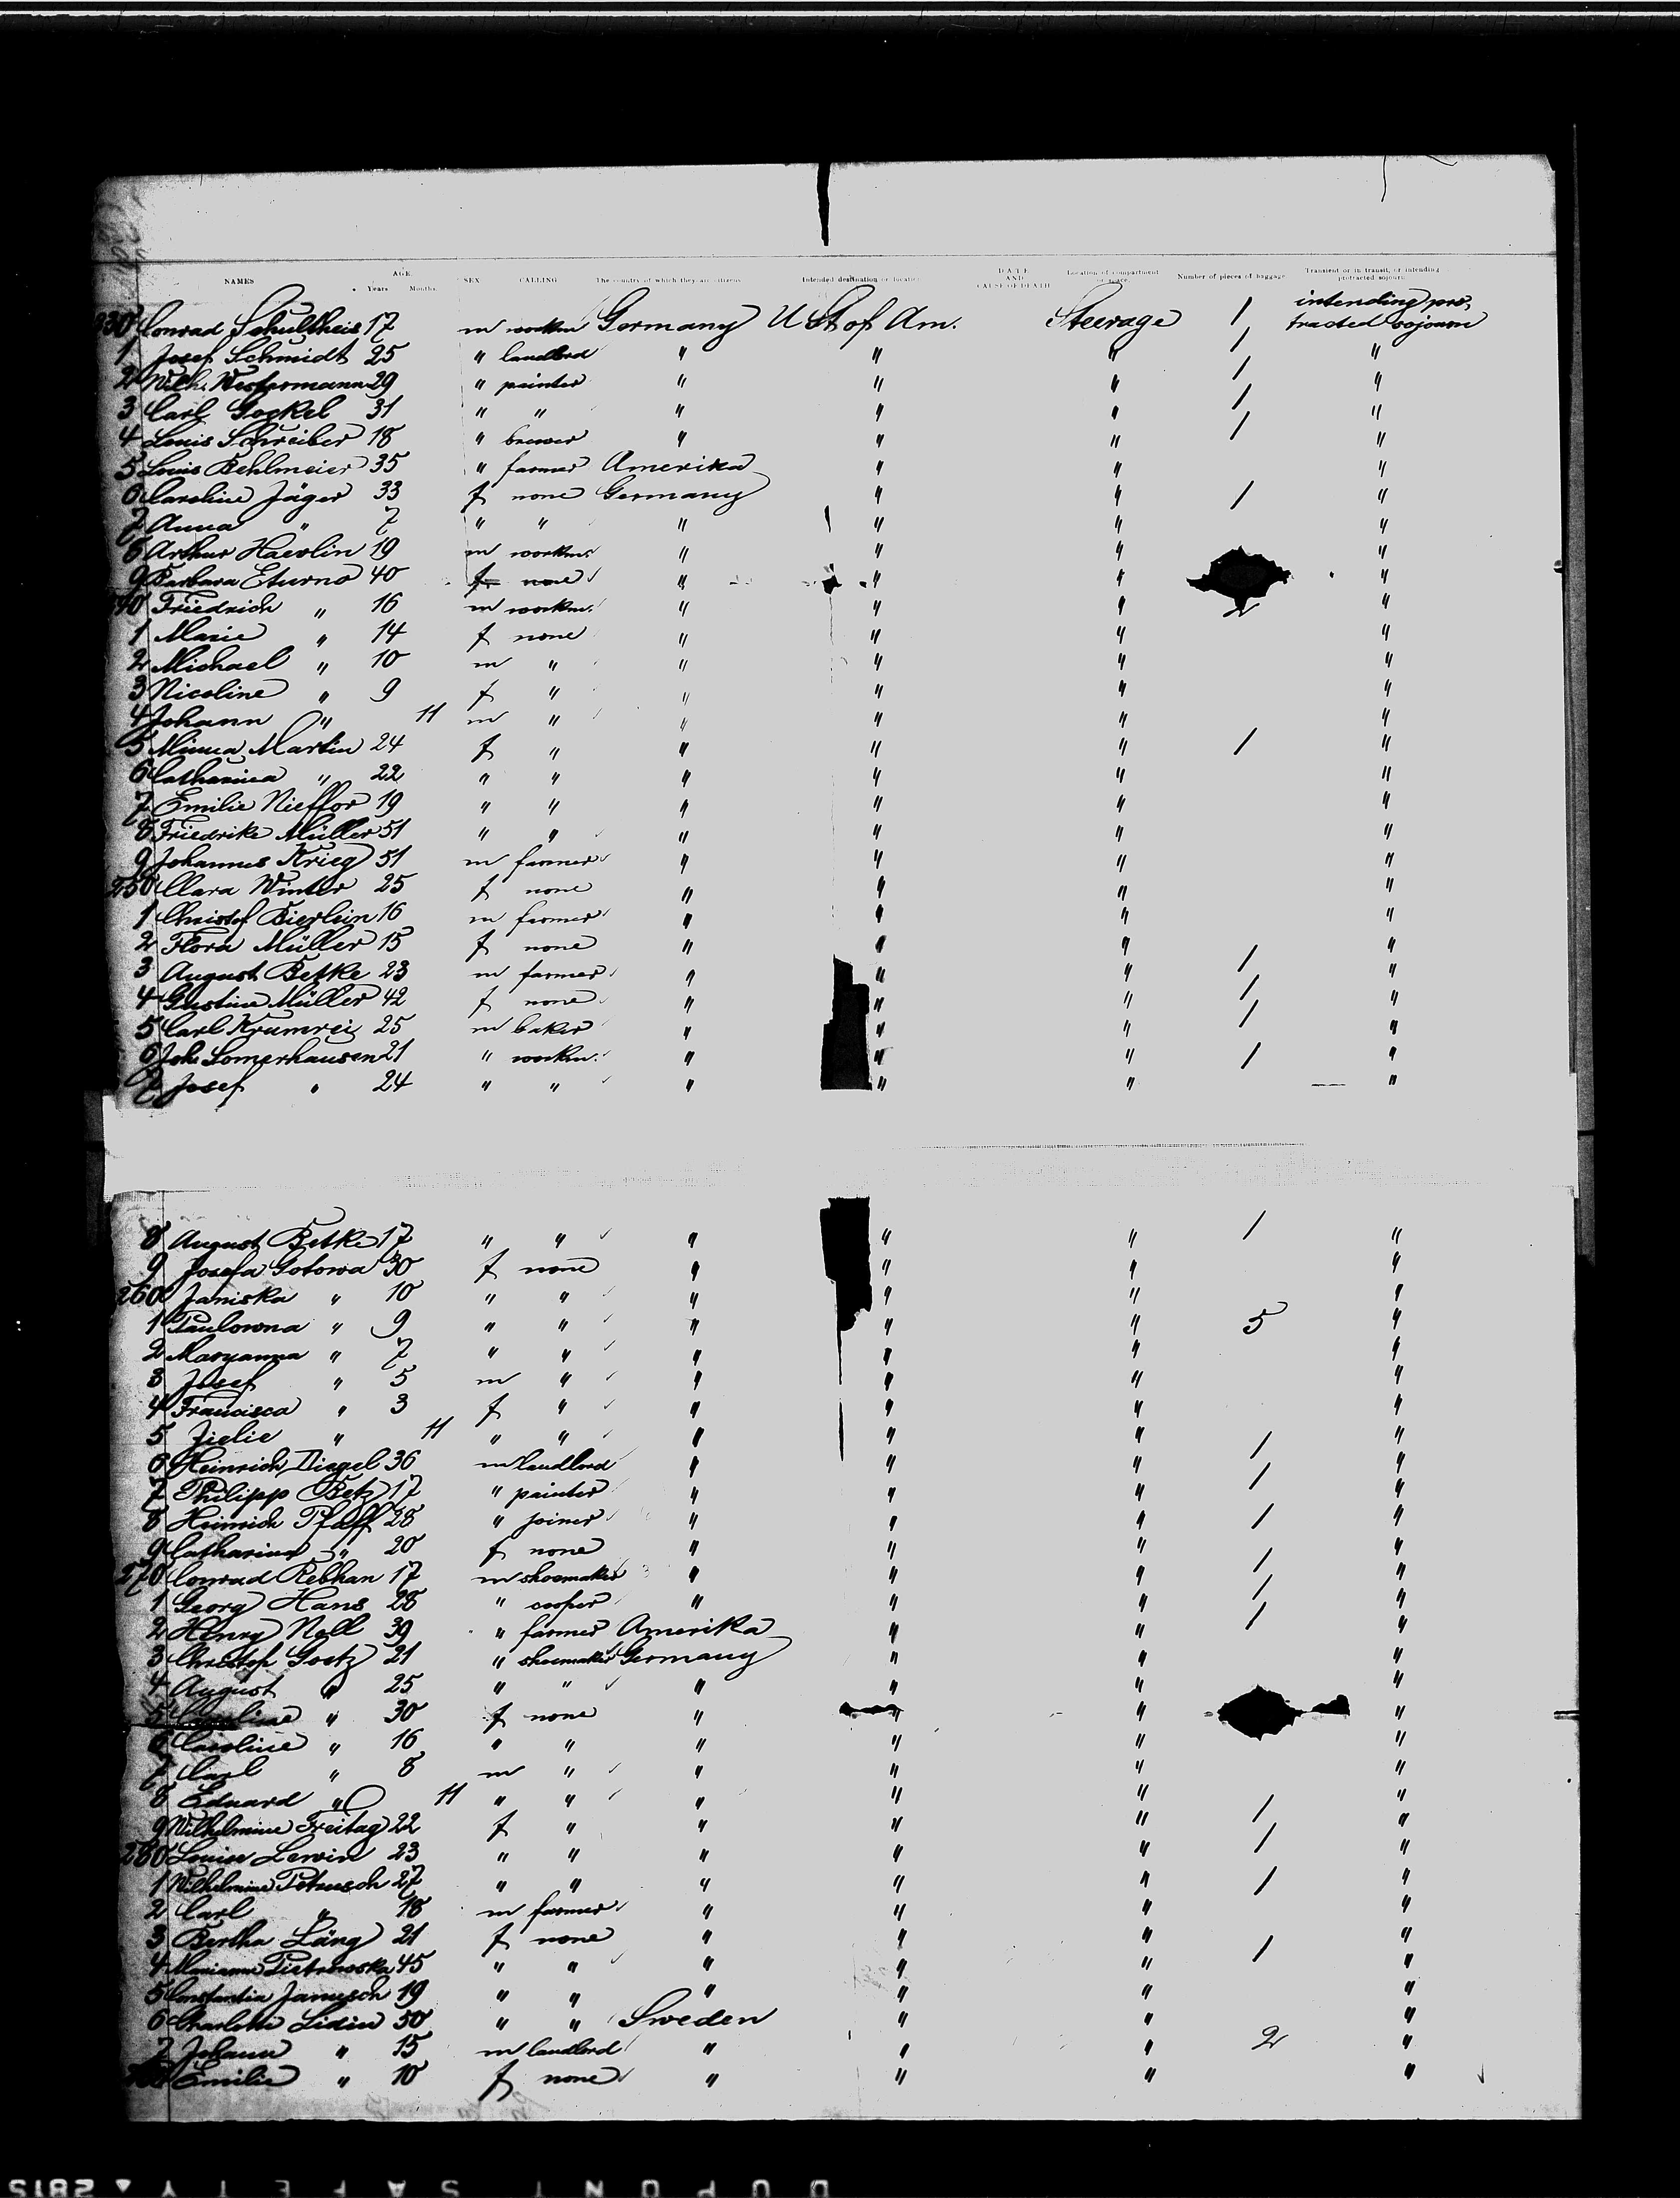 NAMES AGE. Years Months. SEX CALLING The country of which they are citizens Intended destination or location DATE AND CAUSE OF DEATH Location of compartment or space Number of pieces of baggage Transient or in transit, or intending protracted sojourn
230 Conrad Schultheis 17 m workm Germany U St of Am. Steerage 1 intending pro, tracted sojourn
1 Josef Schmidt 25 " landlord " " " 1 "
2 Wilh. Westermann 29 " painter " " " 1 "
3 Carl Gockel 31 " " " " " 1 "
4 Louis Schreiber 18 " brewer " " " 1 "
5 Louis Behlmeier 35 " farmer Amerika " " "
6 Caroline Jäger 33 f none Germany " " 1 "
7 Anna " 7 " " " " " "
8 Arthur Haevlin 19 m workm. " " " "
9 Barbara Eturno 40 f none " " " "
240 Friedrich " 16 m workm. " " " 2 "
1 Marie " 14 f none " " " "
2 Michael " 10 m " " " " "
3 Nicoline " 9 f " " " " "
4 Johann " 11 m " " " " "
5 Minna Martin 24 f " " " " 1 "
6 Catharina " 22 " " " " " "
7 Emilie Nieffor 19 " " " " " "
8 Friedrike Müller 51 " " " " " "
9 Johannes Krieg 51 m farmer " " " "
250 Clara Winter 25 f none " " " "
1 Christof Bierlein 16 m farmer " " " "
2 Flora Müller 15 f none " " " 1 "
3 August Betke 23 m farmer " " " 1 "
4 Gustine Müller 42 f none " " " 1 "
5 Carl Krumrei 25 m baker " " " 1 "
6 Joh. Somerhausen 21 " workm. " " " 1 "
7 Josef " 24 " " " " " "
8 August Betke 17 " " " " " 1 "
9 Josefa Gotowa 30 f none " " " "
260 Janiska " 10 " " " " " "
1 Paulowna " 9 " " " " " 5 "
2 Maryanna " 7 " " " " " "
3 Josef " 5 m " " " " "
4 Francisca " 3 f " " " " "
5 Zielie " 11 " " " " " "
6 Heinrich Diegel 36 m landlord " " " 1 "
7 Philipp Betz 17 " painter " " " 1 "
8 Heinrich Pfaff 28 " joiner " " " 1 "
9 Catharina " 20 f none " " " "
270 Conrad Rebhan 17 m shoemaker " " " 1 "
1 Georg Hans 28 " cooper " " " 1 "
2 Henry Nell 39 " farmer Amerika " " 1 "
3 Christoph Goetz 21 " shoemaker Germany " " "
4 August " 25 " " " " " "
5 Caroline " 30 f none " " "
6 Caroline " 16 " " " " " "
7 Carl " 8 m " " " " "
8 Eduard " 11 " " " " " "
9 Wilhelmine Freitag 22 f " " " " 1 "
280 Louise Lewin 23 " " " " " 1 "
1 Wilhelmine Petrusch 27 " " " " " 1 "
2 Carl " 18 m farmer " " " "
3 Bertha Läng 21 f none " " " 1 "
4 Marianna Pietrowska 45 " " " " " "
5 Constantia Janusch 19 " " " " " "
6 Charlotte Lidin 50 " " Sweden " " "
7 Johann " 15 m landlord " " " 2 "
Emilie " 10 f none " " " "
DUPONT SAFETY 2815